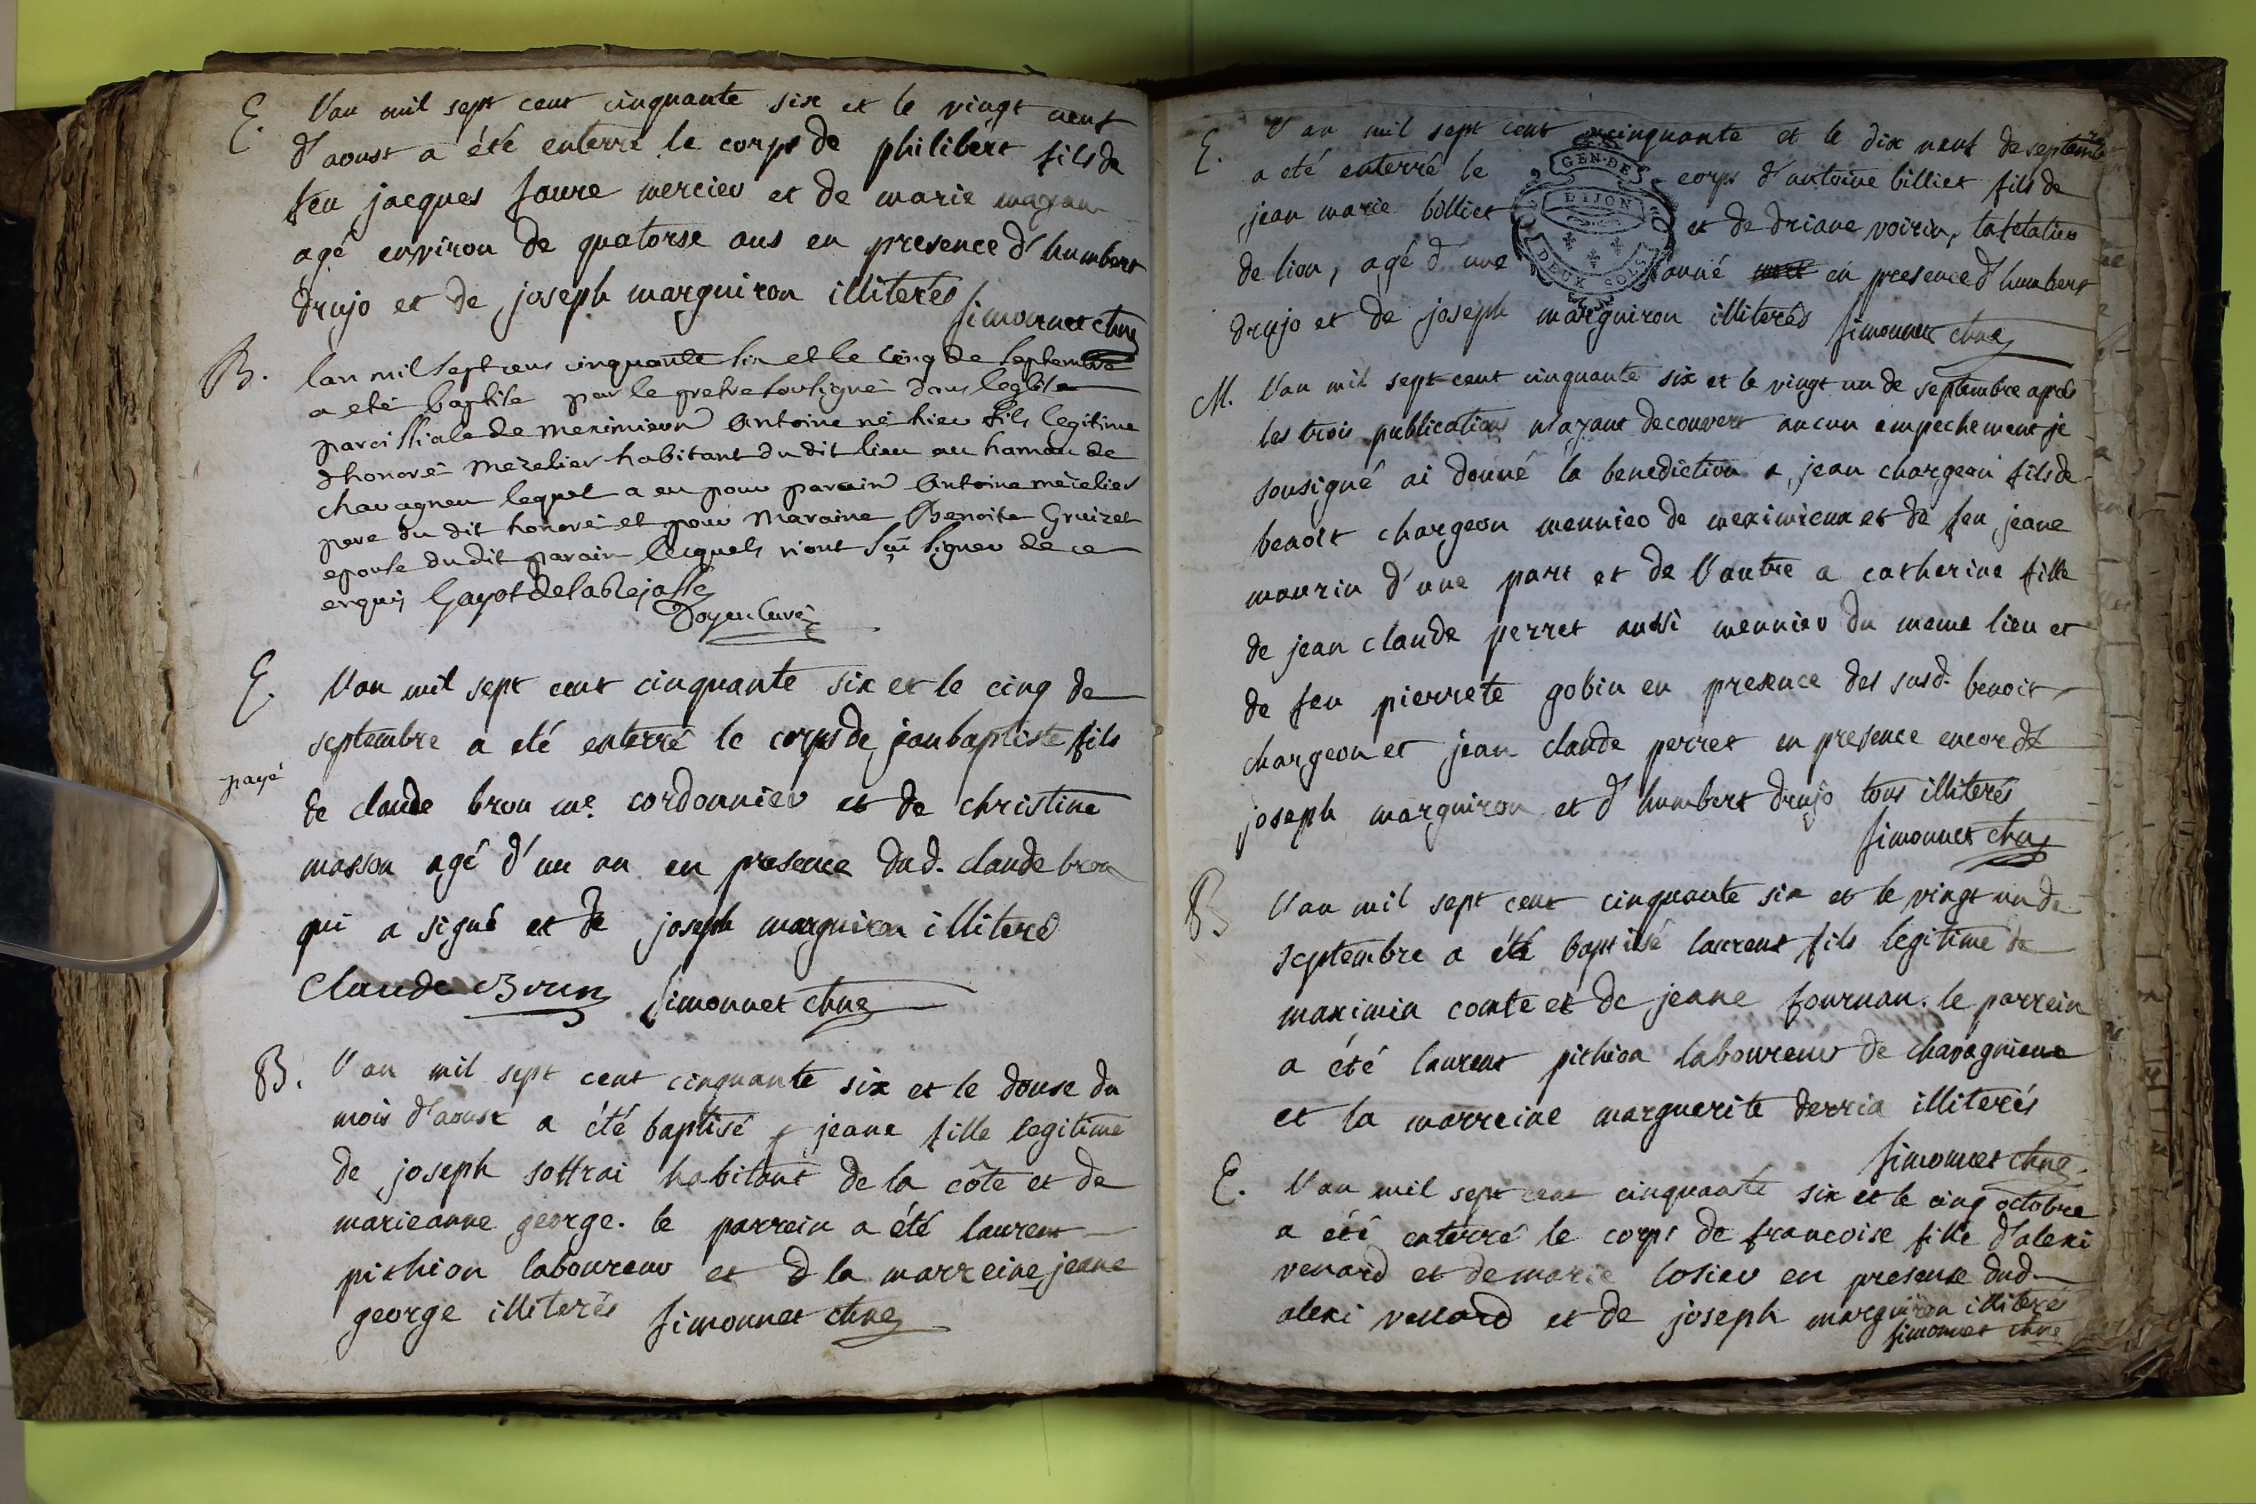 E. l'an mil sept cent cinquante six et le vingt neuf
d'aoust a été enterré le corps de philibert fils de
feu jacques faure mercier et de marie
agé environ de quatorse ans en presence d'humbert
drujo et de joseph marguiron illiterés
simonnet chne
B. lan mil sept cens cinquante six et le cinq de septembre
a eté baptise par le pretre soussigné dans leglise
paroissiale de meximieux antoine né hier fils legitime
dhonoré mezelier habitant du dit lieu au hamau de
chavagneu lequel a eu pour parain antoine mezelier
pere du dit honoré et pour maraine Benoite Gruizet
epouse du dit parain lesquels n'ont sçu signer de ce
enquis Gayot de la Rejasse
Doyen curé
E. l'an mil sept cent cinquante six et le cinq de
septembre a eté enterré le corps de jean baptiste fils
payé
de claude bron me. cordonnier et de christine
masson agé d'un an en presence dud. claude bron
qui a signé et de joseph marguiron illiteré
Claude Brun simonnet chne
B. l'an mil sept cent cinquante six et le douse du
mois d'aoust a été baptisé jeane fille legitime
de joseph sottrai habitant de la côte et de
marieanne george. le parrein a été laurent
pithion laboureur et d la marreine jeane
george illiterés simonnet chne
E. l'an mil sept cent cinquante et le dix neuf de septembre
a eté enterré le corps d'antoine billiet fils de
GEN·DE
DIJON
DEUX SOLS
jean marie billiet et de driane voirin, tafetatier
de lion, agé d'une année en presence d'humbert
drujo et de joseph marguiron illiterés simonnet chne
M. l'an mil sept cent cinquante six et le vingt un de septembre après
les trois publications n'ayant decouvert aucun empechement je
sousigné ai donné la benediction a jean chargeon fils de
benoit chargeon meunier de meximieux et de feu jeane
maurin d'une part et de l'autre a catherine fille
de jean claude perret aussi meunier du meme lieu et
de feu pierrete gobin en presence des susd. benoit
chargeon et jean claude perret en presence encor de
joseph marguiron et d'humbert drujo tous illiterés
simonnet chne
B l'an mil sept cent cinquante six et le vingt un de
septembre a été baptisé laurent fils legitime de
maximin comte et de jeane fournan. le parrein
a été laurent pithion laboureur de chavagnieux
et la marreine marguerite derria illiterés
simonnet chne
E. l'an mil sept cent cinquante six et le cinq octobre
a été enterré le corps de francoise fille d'alexi
venard et de marie losier en presence dud.
alexi venard et de joseph marguiron illiterés
simonnet chne